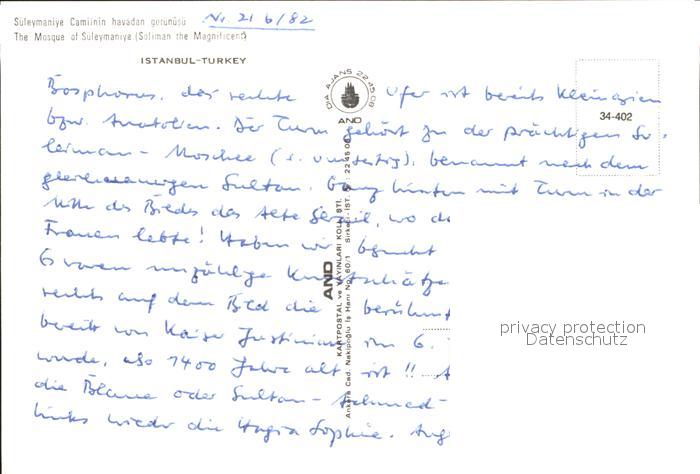 Süleymaniye Camiinin havadan görünüsü Nr. 21 6/82
The Mosque of Süleymaniye (Soliman the Magnificent)
ISTANBUL-TURKEY
DIA AJANS 22 45 08
AND
34-402
Bosphorus, das rechte Ufer ist bereits Kleinasien
bzw. Anatolien. Der Turm gehört zu der prächtigen Su-
leiman-Moschee (s. umseitig), benannt nach dem
gleichnamigen Sultan. Ganz hinten mit Turm in der
Mitte des Bildes das alte Serail, wo de
Frauen lebte! Haben wir besucht
Es waren unzählige Kunstschätze
rechts auf dem Bild die berühmt
bereits von Kaiser Justinian im 6.
wurde, also 1400 Jahre alt ist!!
die Blaue oder Sultan-Achmed-
links wieder die Hagia Sophia.
AND
KARTPOSTAL ve YAYINLARI KOLL. ŞTİ.
Ankara Cad. Nakipoğlu İş Hanı No: 60/1 Sirkeci-İST.
privacy protection
Datenschutz